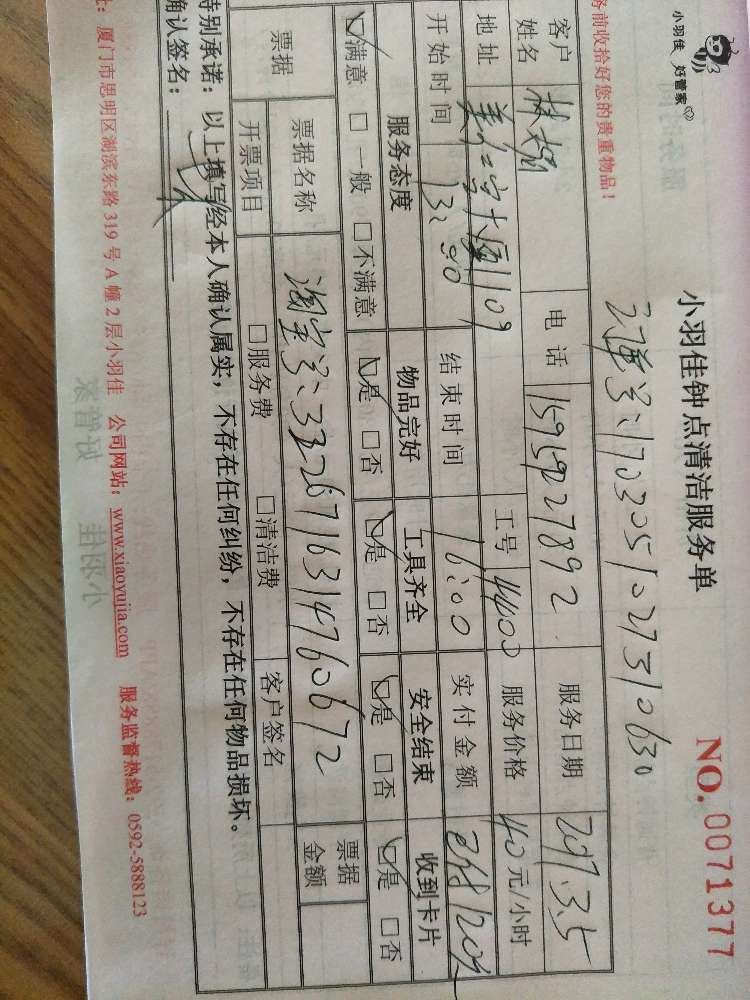 小羽佳 好管家
小羽佳钟点清洁服务单 NO.0071377
务前收拾好您的贵重物品！
订单号：1703051027310630
客户姓名 林 电话 15959227892 服务日期 2017.3.5
地址 大厦1109 工号 4400 服务价格 40元/小时
开始时间 13:00 结束时间 16:00 实付金额 120
服务态度 物品完好 工具齐全 安全结束 收到卡片
☑满意 □一般 □不满意 ☑是 □否 ☑是 □否 ☑是 □否 ☑是 □否
票据 票据名称 淘宝号：3326716314760672 票据金额
开票项目 □服务费 □清洁费 客户签名
特别承诺：以上填写经本人确认属实，不存在任何纠纷，不存在任何物品损坏。
确认签名：
：厦门市思明区湖滨东路319号A幢2层小羽佳 公司网站：www.xiaoyujia.com 服务监督热线：0592-5888123